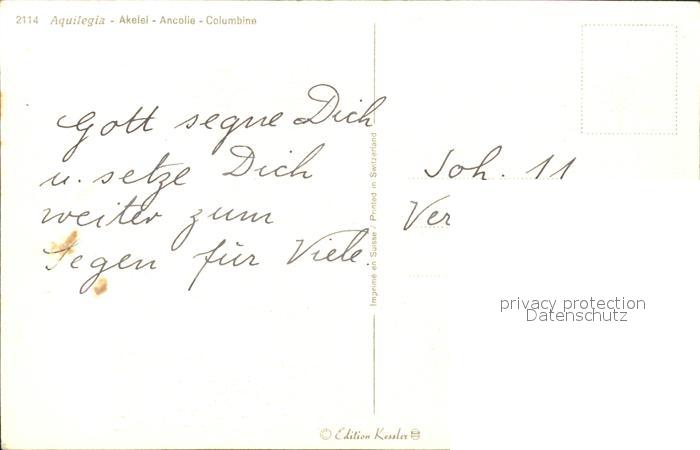 2114 Aquilegia - Akelei - Ancolie - Columbine
Gott segne Dich
u. setze Dich
weiter zum
Segen für Viele.
Imprimé en Suisse / Printed in Switzerland
Joh. 11
Ver
privacy protection
Datenschutz
© Edition Kessler